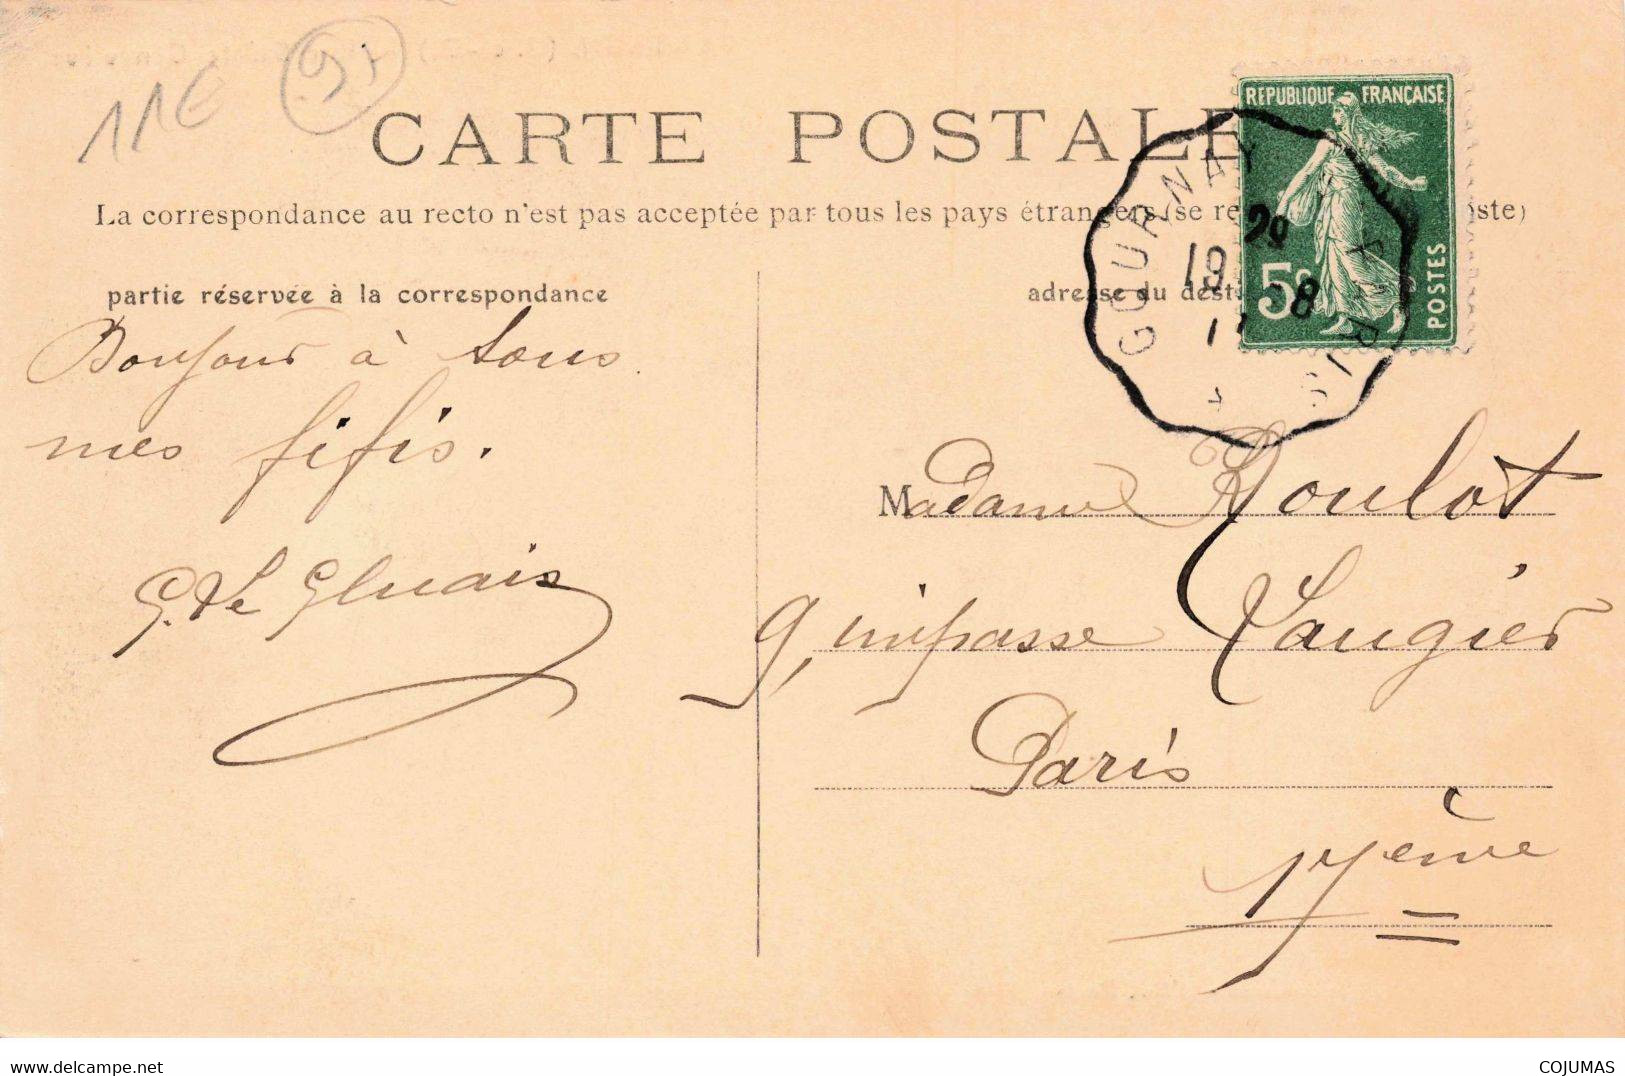 11€ 91
CARTE POSTALE
La correspondance au recto n'est pas acceptée par tous les pays étrangers (se re oste)
partie réservée à la correspondance
adresse du dest
REPUBLIQUE FRANÇAISE
5c
POSTES
GOURNAY A PARIS
Bonjour à tous
mes fifis.
Madame Roulot
9, impasse Laugier
Paris
17ème
COJUMAS